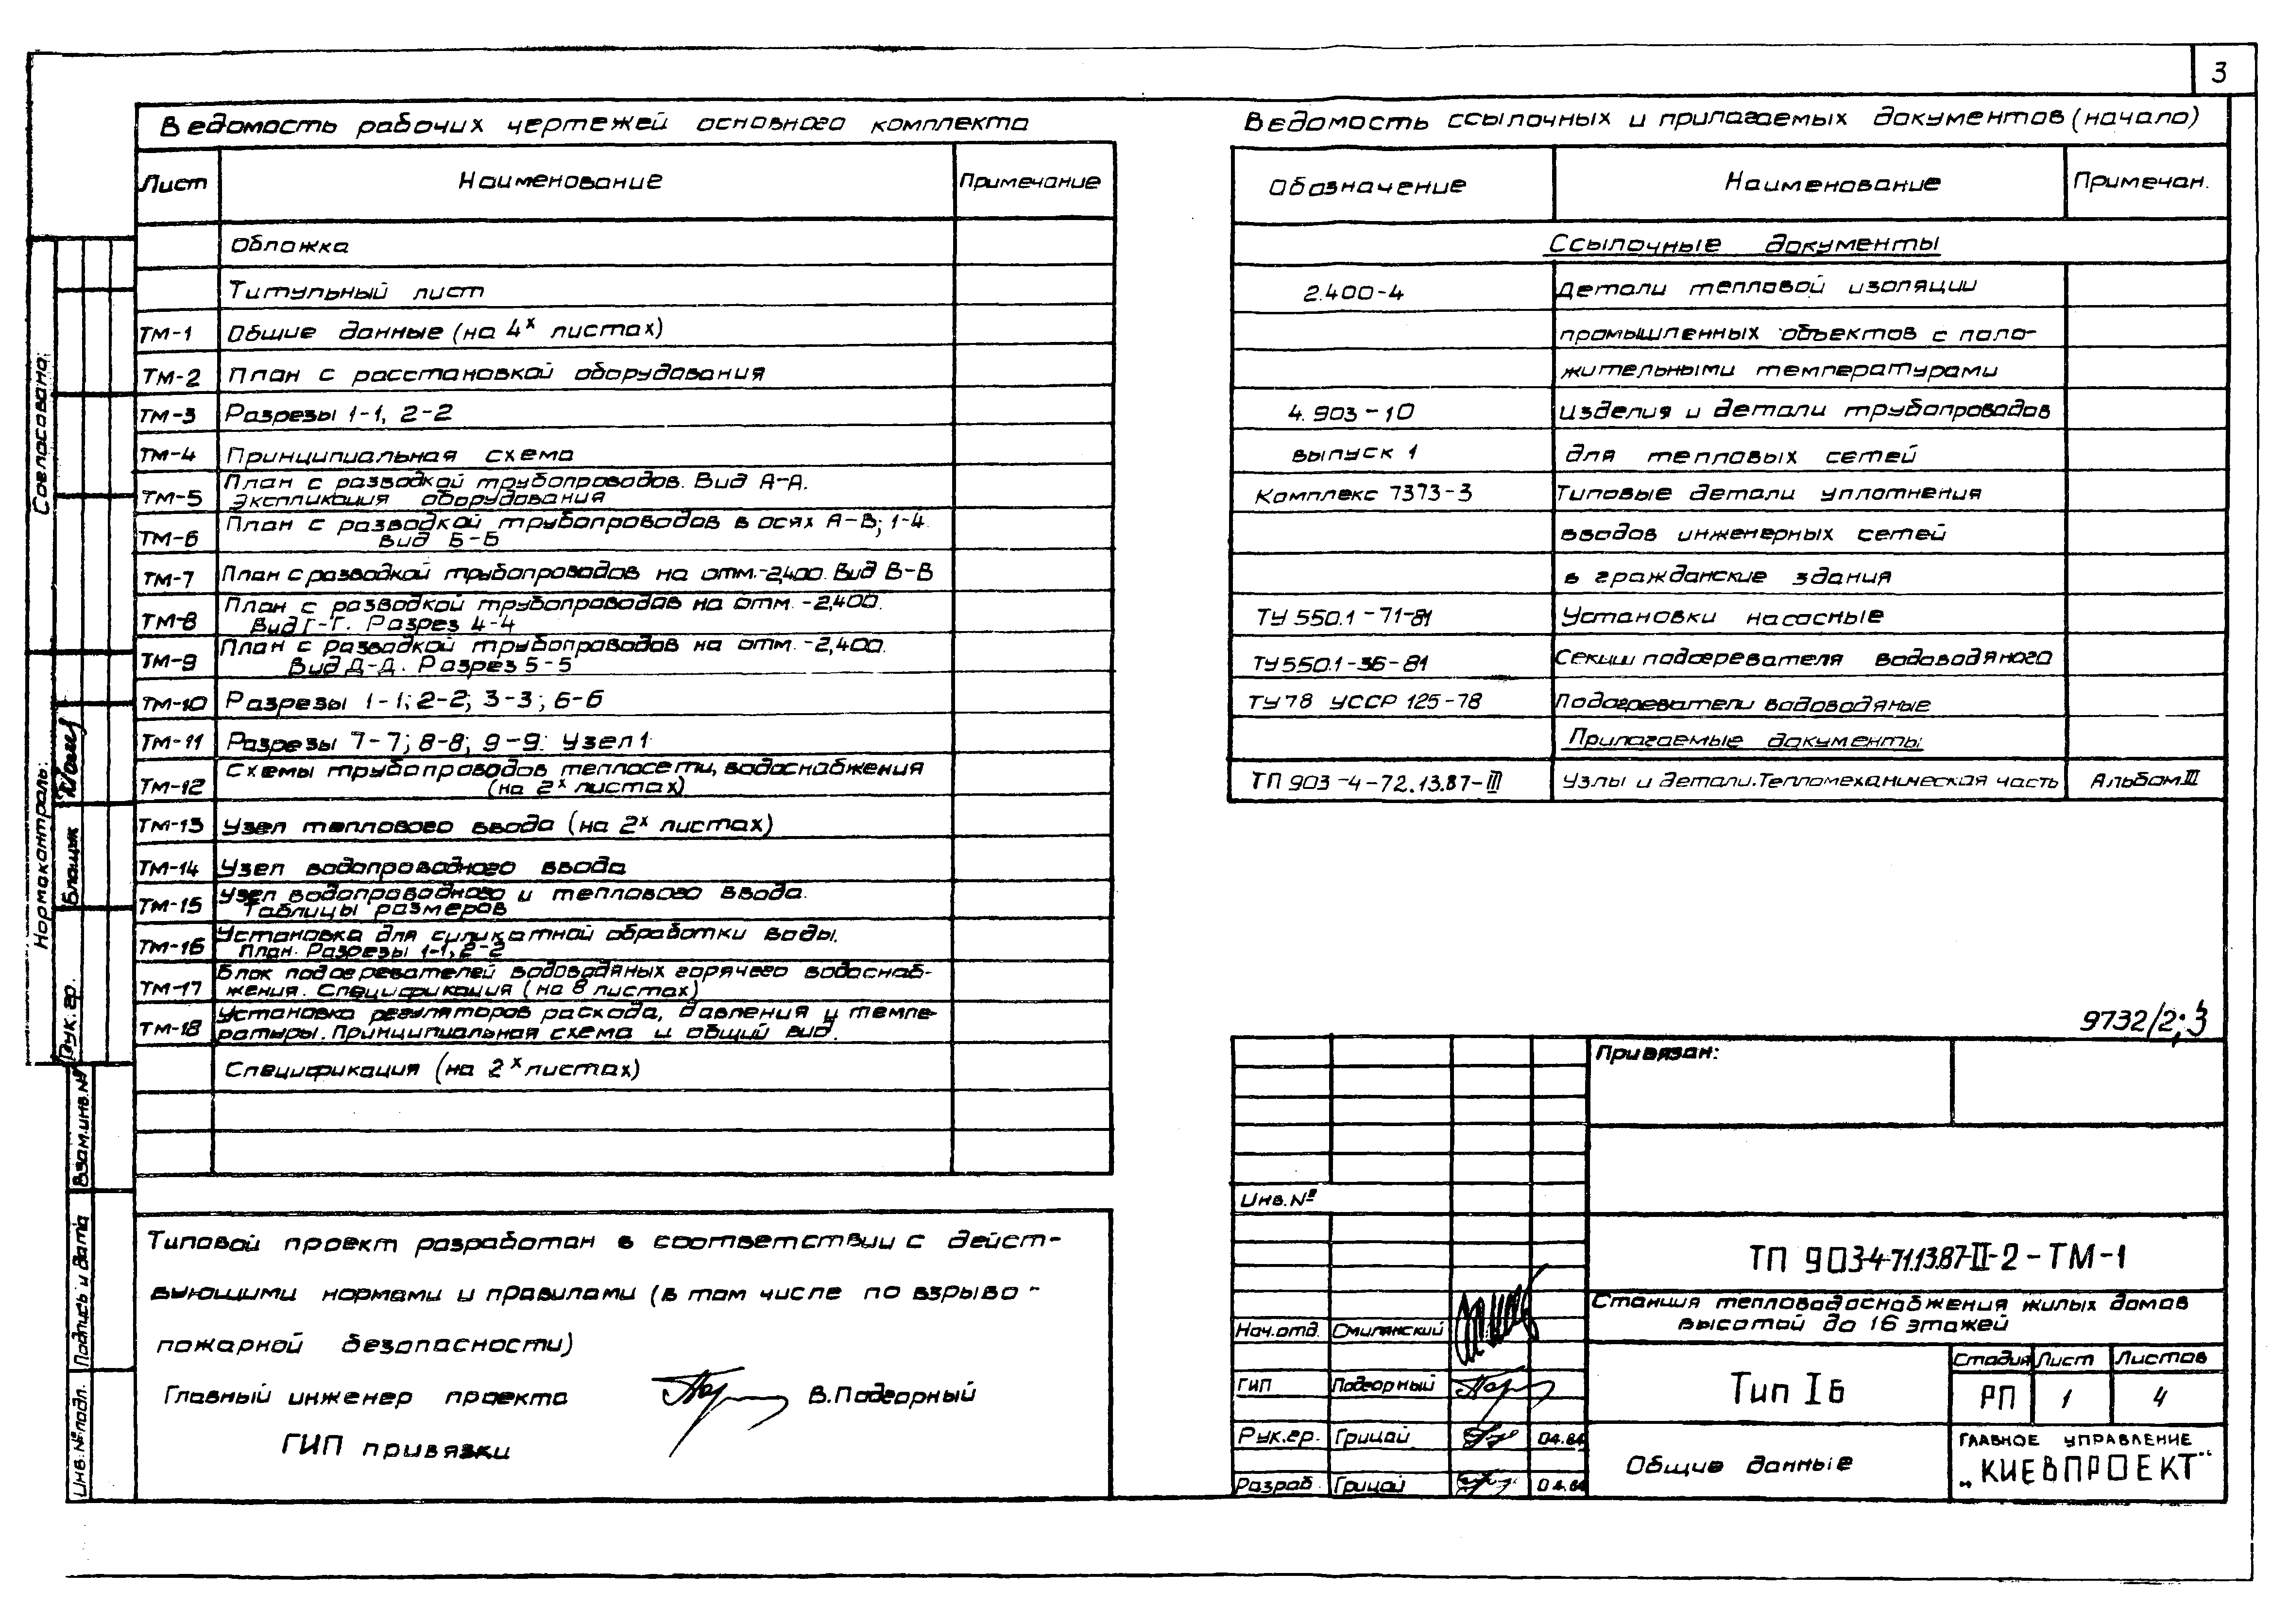 3
Ведомость рабочих чертежей основного комплекта
Лист Наименование Примечание
Обложка
Титульный лист
ТМ-1 Общие данные (на 4х листах)
ТМ-2 План с расстановкой оборудования
ТМ-3 Разрезы 1-1, 2-2
ТМ-4 Принципиальная схема
ТМ-5 План с разводкой трубопроводов. Вид А-А.
Экспликация оборудования
ТМ-6 План с разводкой трубопроводов в осях А-В; 1-4.
Вид Б-Б
ТМ-7 План с разводкой трубопроводов на отм.-2,400. Вид В-В
ТМ-8 План с разводкой трубопроводов на отм. -2,400.
Вид Г-Г. Разрез 4-4
ТМ-9 План с разводкой трубопроводов на отм. -2,400.
Вид Д-Д. Разрез 5-5
ТМ-10 Разрезы 1-1; 2-2; 3-3; 6-6
ТМ-11 Разрезы 7-7; 8-8; 9-9. Узел 1
ТМ-12 Схемы трубопроводов теплосети, водоснабжения
(на 2х листах)
ТМ-13 Узел теплового ввода (на 2х листах)
ТМ-14 Узел водопроводного ввода
ТМ-15 Узел водопроводного и теплового ввода.
Таблицы размеров
ТМ-16 Установка для силикатной обработки воды.
План. Разрезы 1-1, 2-2
ТМ-17 Блок подогревателей водоводяных горячего водоснаб-
жения. Спецификация (на 8 листах)
ТМ-18 Установка регуляторов расхода, давления и темпе-
ратуры. Принципиальная схема и общий вид.
Спецификация (на 2х листах)
Типовой проект разработан в соответствии с дейст-
вующими нормами и правилами (в том числе по взрыво-
пожарной безопасности)
Главный инженер проекта В.Подгорный
ГИП привязки
Ведомость ссылочных и прилагаемых документов (начало)
Обозначение Наименование Примечан.
Ссылочные документы
2.400-4 Детали тепловой изоляции
промышленных объектов с поло-
жительными температурами
4.903-10 Изделия и детали трубопроводов
выпуск 1 для тепловых сетей
Комплекс 7373-3 Типовые детали уплотнения
вводов инженерных сетей
в гражданские здания
ТУ 550.1-71-81 Установки насосные
ТУ 550.1-36-81 Секции подогревателя водоводяного
ТУ 78 УССР 125-78 Подогреватели водоводяные
Прилагаемые документы
ТП 903-4-72.13.87-III Узлы и детали. Тепломеханическая часть Альбом III
9732/2;3
Привязан:
Инв. №
ТП 903-4-71.13.87-II-2-ТМ-1
Станция тепловодоснабжения жилых домов
высотой до 16 этажей
Нач.отд. Смилянский
ГИП Подгорный
Рук.гр. Грицай 04.84
Разраб. Грицай 04.84
Тип Iб
Стадия Лист Листов
РП 1 4
Общие данные
ГЛАВНОЕ УПРАВЛЕНИЕ
„КИЕВПРОЕКТ"
Согласовано:
Нормоконтроль:
Рук. гр. Блащук
Взам.инв.№
Подпись и дата
Инв.№ подл.